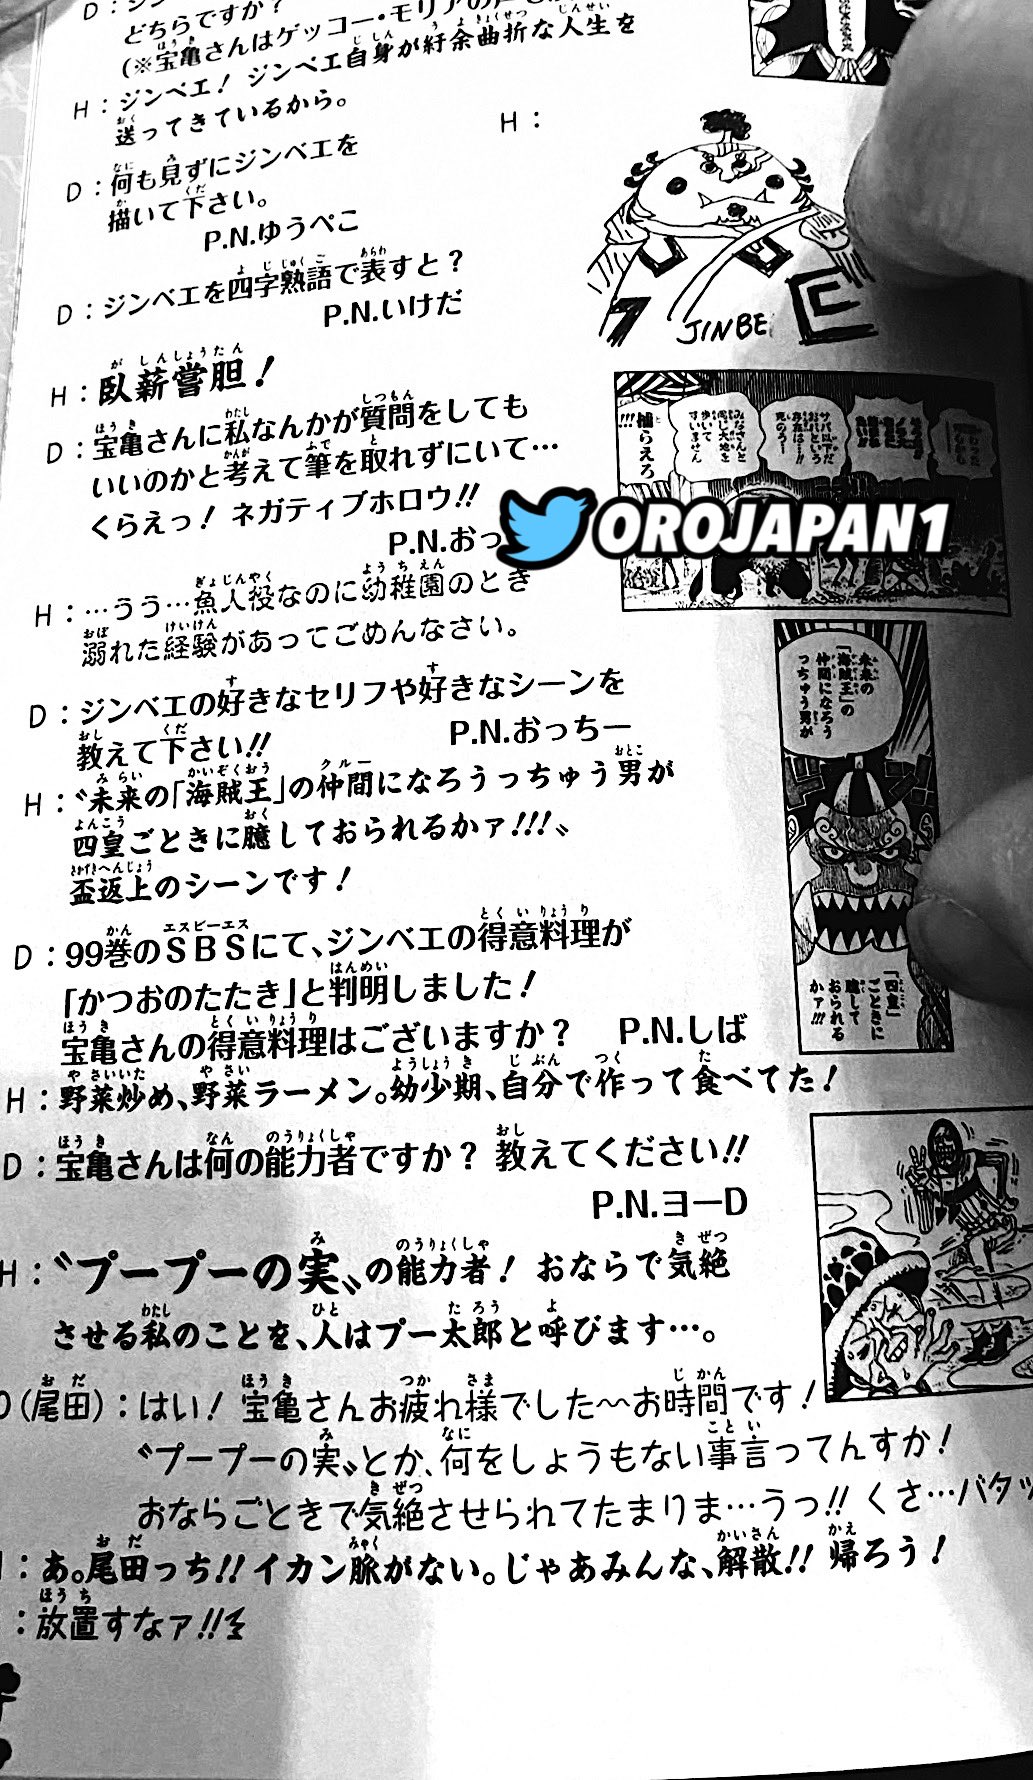 どちらですか?
(※宝亀さんはゲッコー・モリアの声も
H:ジンベエ! ジンベエ自身が紆余曲折な人生を
送ってきているから。
D:何も見ずにジンベエを
描いて下さい。
P.N.ゆうぺこ
H:
JINBE
D:ジンベエを四字熟語で表すと?
P.N.いけだ
H:臥薪嘗胆!
D:宝亀さんに私なんかが質問をしても
いいのかと考えて筆を取れずにいて…
くらえっ! ネガティブホロウ!!
P.N.おっ
捕らえろ!!!
みなさんと
同じ大地を
歩いて
すいません
OROJAPAN1
H:…うう…魚人役なのに幼稚園のとき
溺れた経験があってごめんなさい。
D:ジンベエの好きなセリフや好きなシーンを
教えて下さい!! P.N.おっちー
H:〝未来の「海賊王」の仲間になろうっちゅう男が
四皇ごときに臆しておられるかァ!!!〟
盃返上のシーンです!
未来の
「海賊王」の
仲間になろう
っちゅう男が
「四皇」
ごときに
臆して
おられる
かァ!!!
D:99巻のSBSにて、ジンベエの得意料理が
「かつおのたたき」と判明しました!
宝亀さんの得意料理はございますか? P.N.しば
H:野菜炒め、野菜ラーメン。幼少期、自分で作って食べてた!
D:宝亀さんは何の能力者ですか? 教えてください!!
P.N.ヨーD
H:〝プープーの実〟の能力者! おならで気絶
させる私のことを、人はプー太郎と呼びます…。
O(尾田):はい! 宝亀さんお疲れ様でした〜お時間です!
〝プープーの実〟とか、何をしょうもない事言ってんすか!
おならごときで気絶させられてたまりま…うっ!! くさ…バタッ
:あ。尾田っち!! イカン脈がない。じゃあみんな、解散!! 帰ろう!
:放置すなァ!!